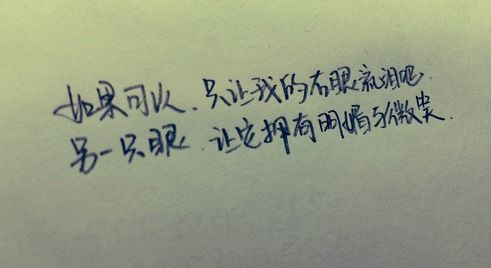 如果可以、只让我的右眼流泪吧.
另一只眼 让它拥有明媚与微笑.